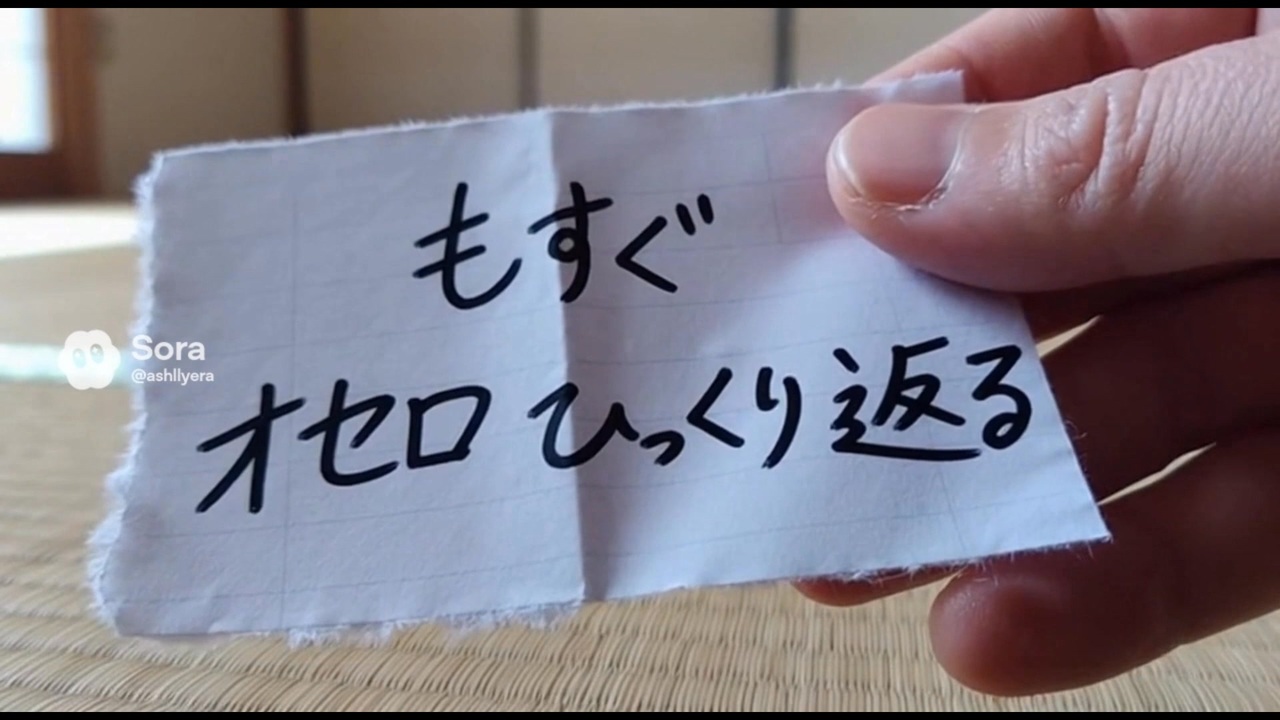 もすぐ
オセロひっくり返る
Sora
@ashllyera